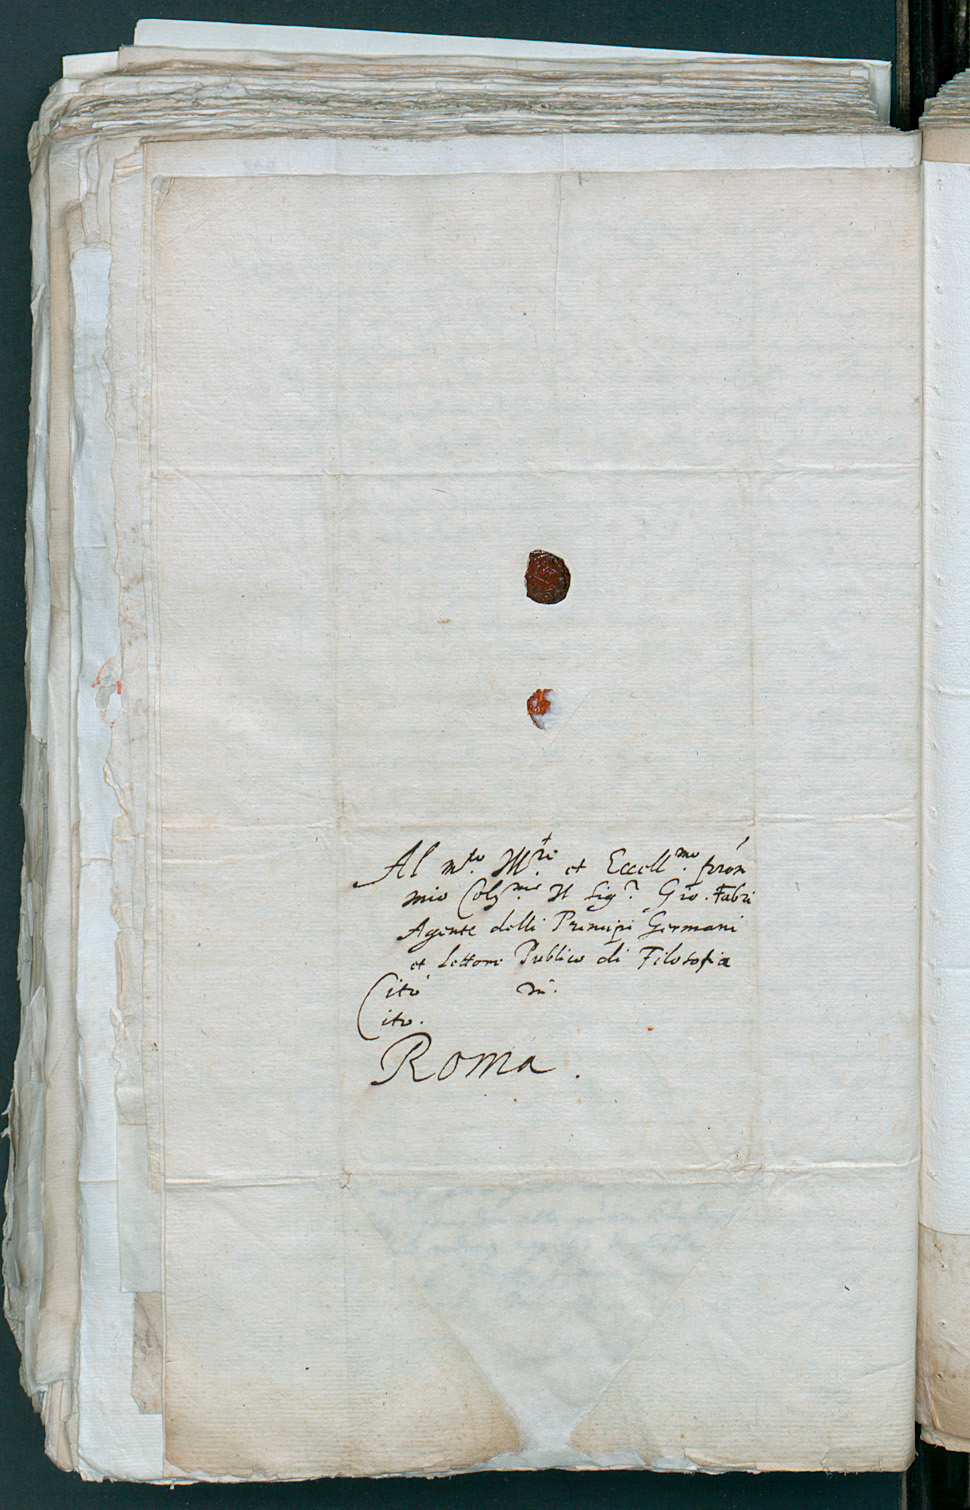 Al m.to Ill.re et Eccell.mo prõn
mio Col.mo Il Sig.r Gio. Fabri
Agente delli Principi Germani
et Lettore Publico di Filosofia
Cito in.
Cito.
Roma.